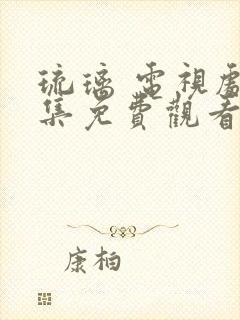 琉璃 電視處
集免費觀看
康柏